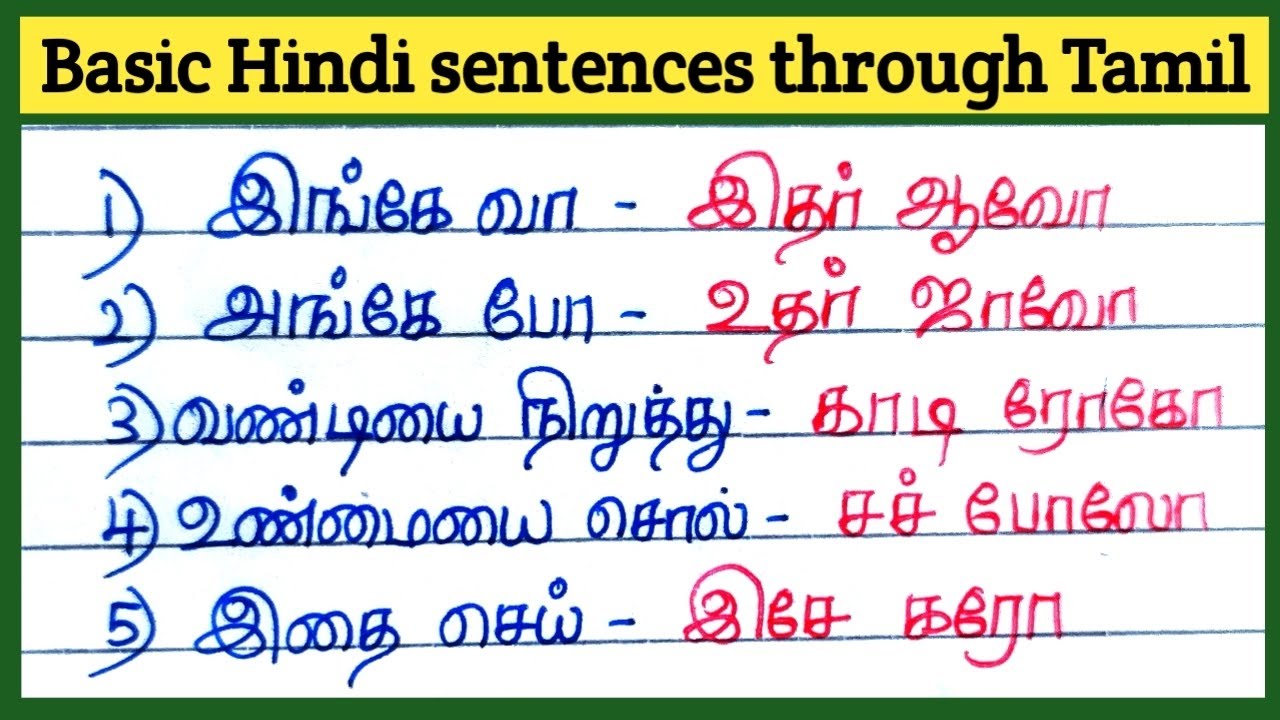 Basic Hindi sentences through Tamil
1) இங்கே வா - இதர் ஆவோ
2) அங்கே போ - உதர் ஜாவோ
3) வண்டியை நிறுத்து - காடி ரோகோ
4) உண்மையை சொல் - சச் போலோ
5) இதை செய் - இசே கரோ